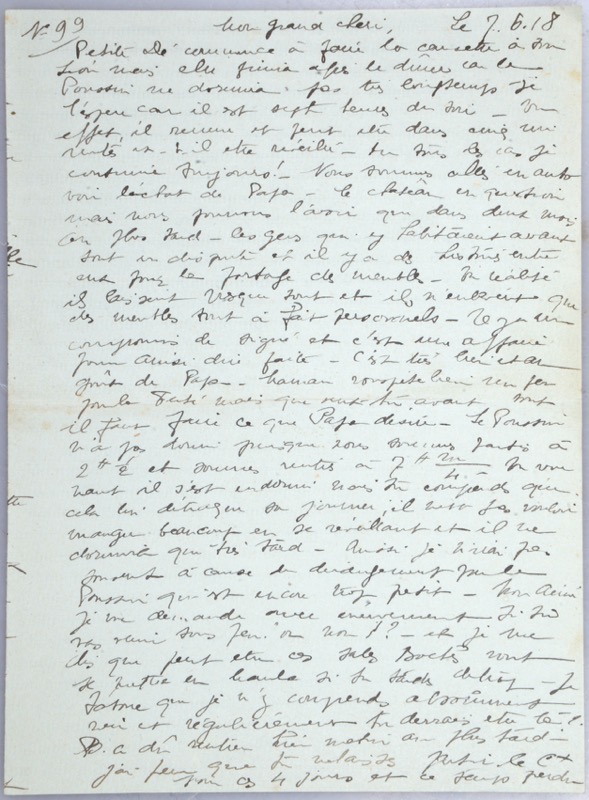 N° 99 Mon grand chéri, Le 7.6.18
Petite Dé commence à faire la causette à son
mais elle finira après le dîner car le
Poussin ne dormira pas très longtemps je
l'espère car il est sept heures du soir - En
effet, il remue et peut être dans cinq mi
nutes sera-t-il être réveillé - En tous les cas je
continue toujours! - Nous sommes allés en auto
voir l'achat de Papa - le château en question
mais nous pouvons l'avoir que dans deux mois
au plus tard - les gens qui y habitaient avant
sont en dispute et il y a des histoires entre
eux pour le partage des meubles - En réalité
ils laissent presque tout et ils n'enlèvent que
des meubles tout à fait personnels - Il y a un
compromis de signé et c'est une affaire
pour ainsi dire faite - C'est très bien et au
goût de Papa - Maman rouspète bien un peu
pour la mais que avant tout
il faut faire ce que Papa désire - Le Poussin
n'a pas dormi puisque nous sommes partis à
2 h et sommes rentrés à 7 h En
il s'est endormi mais tu comprends que
cela lui détraque sa journée, il ne va pas vouloir
manger beaucoup en se réveillant et il ne
dormira que très tard - Aussi je n'irai pas
souvent à cause du dérangement pour le
Poussin qui est encore trop petit - Mon Aimé
je me demande avec énervement si tu
vas venir sous peu ou non?? - et je me
dis que peut être ces sales Boches vont
se mettre en branle si tu tardes de trop - Je
t'avoue que je n'y comprends absolument
rien et régulièrement tu devrais être là!
D. a dû rentrer hier matin au plus tard -
j'ai peur que tu ne laisses partir le
pour ces 4 jours et ce temps perdu